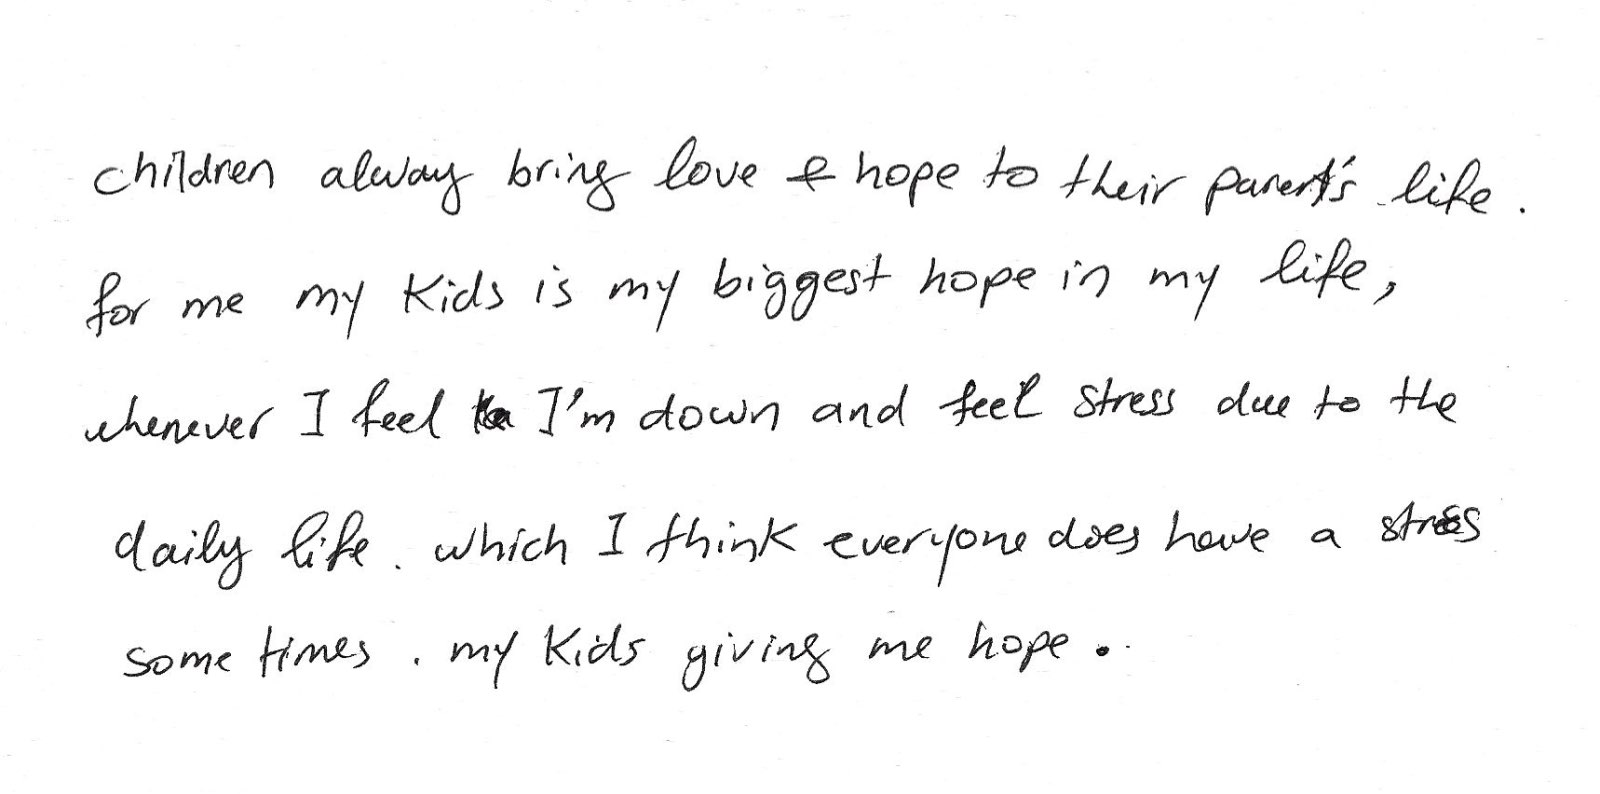 children alway bring love & hope to their parent's life.
for me my kids is my biggest hope in my life,
whenever I feel I'm down and feel stress due to the
daily life. which I think everyone does have a stress
some times. my kids giving me hope.